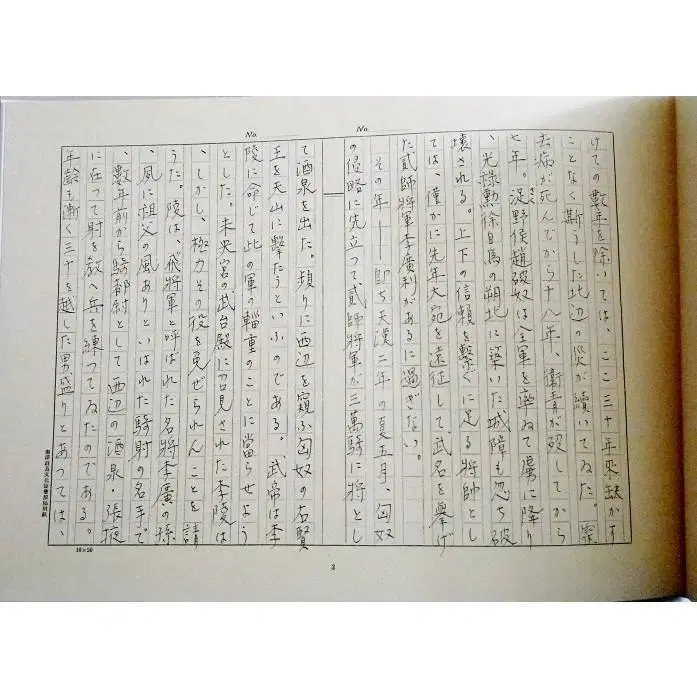 No.
けての數年を除いては、ここ三十年來缺かす
ことなく斯うした北辺の災が續いてゐた。霍
去病が死んでから十八年、衛青が歿してから
七年。浞野侯趙破奴は全軍を率ゐて虜に降り
、光祿勳徐自爲の朔北に築いた城障も忽ち破
壊される。上下の信賴を繋ぐに足る將帥とし
ては、僅かに先年大宛を遠征して武名を擧げ
た貳師將軍李廣利があるに過ぎない。
その年——即ち天漢二年の夏五月、匈奴
の侵略に先立つて貳師將軍が三萬騎に將とし
No.
て酒泉を出た。頻りに西辺を窺ふ匈奴の右賢
王を天山に擊たうといふのである。武帝は李
陵に命じて此の軍の輜重のことに當らせよう
とした。未央宮の武台殿に召見された李陵は
、しかし、極力その役を免ぜられんことを請
うた。陵は、飛將軍と呼ばれた名將李廣の孫
、夙に祖父の風ありといはれた騎射の名手で
、數年前から騎都尉として西辺の酒泉・張掖
に在つて射を敎へ兵を練つてゐたのである。
年齢も漸く三十を越した男盛りとあつては、
10×20
3